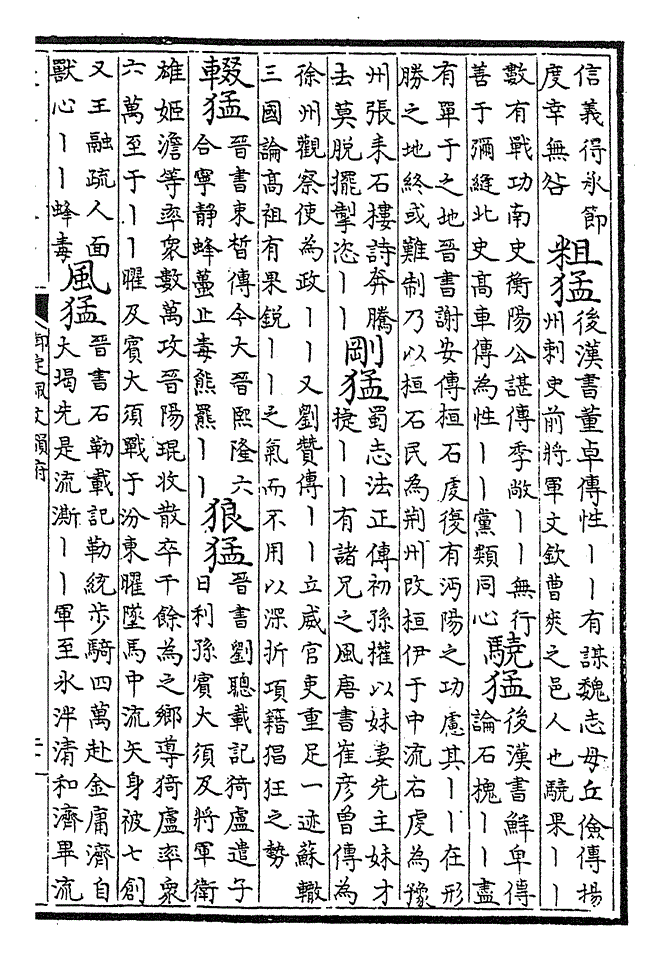 信義得氷節
度幸無咎
粗猛
後漢書董卓傳性丨丨有謀魏志毋丘儉傳揚
州刺史前將軍文欽曹爽之邑人也驍果丨丨
數有戰功南史衡陽公諶傳季敞丨丨無行
善于彌縫北史高車傳為性丨丨黨類同心
驍猛
後漢書鮮卑傳
論石槐丨丨盡
有單于之地晉書謝安傳桓石虔復有沔陽之功慮其丨丨在形
勝之地終或難制乃以桓石民為荆州改桓伊于中流石虔為豫
州張耒石樓詩奔騰
去莫脫擺掣恣丨丨
剛猛
蜀志法正傳初孫權以妹妻先主妹才
捷丨丨有諸兄之風唐書崔彥曾傳為
徐州觀察使為政丨丨又劉贊傳丨丨立威官吏重足一迹蘇轍
三國論高祖有果銳丨丨之氣而不用以深折項籍猖狂之勢
輟猛
晉書束晳傳今大晉熙隆六
合寧静蜂蠆止毒熊羆丨丨
狼猛
晉書劉聰載記猗盧遣子
日利孫賓大須及將軍衛
雄姬澹等率衆數萬攻晉陽琨收散卒千餘為之鄉導猗盧率衆
六萬至于丨丨曜及賓大須戰于汾東曜墜馬中流矢身被七創
又王融疏人面
獸心丨丨蜂毒
風猛
晉書石勒載記勒統步騎四萬赴金庸濟自
大堨先是流澌丨丨軍至氷泮清和濟畢流
御定佩文韻府